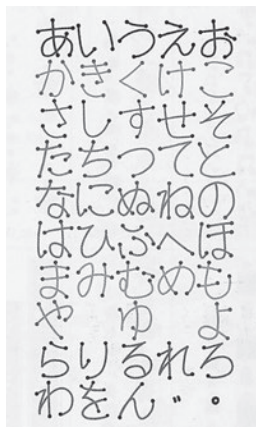 あいうえお
かきくけこ
さしすせそ
たちつてと
なにぬねの
はひふへほ
まみむめも
や ゆ よ
らりるれろ
わをん ゛ ゜